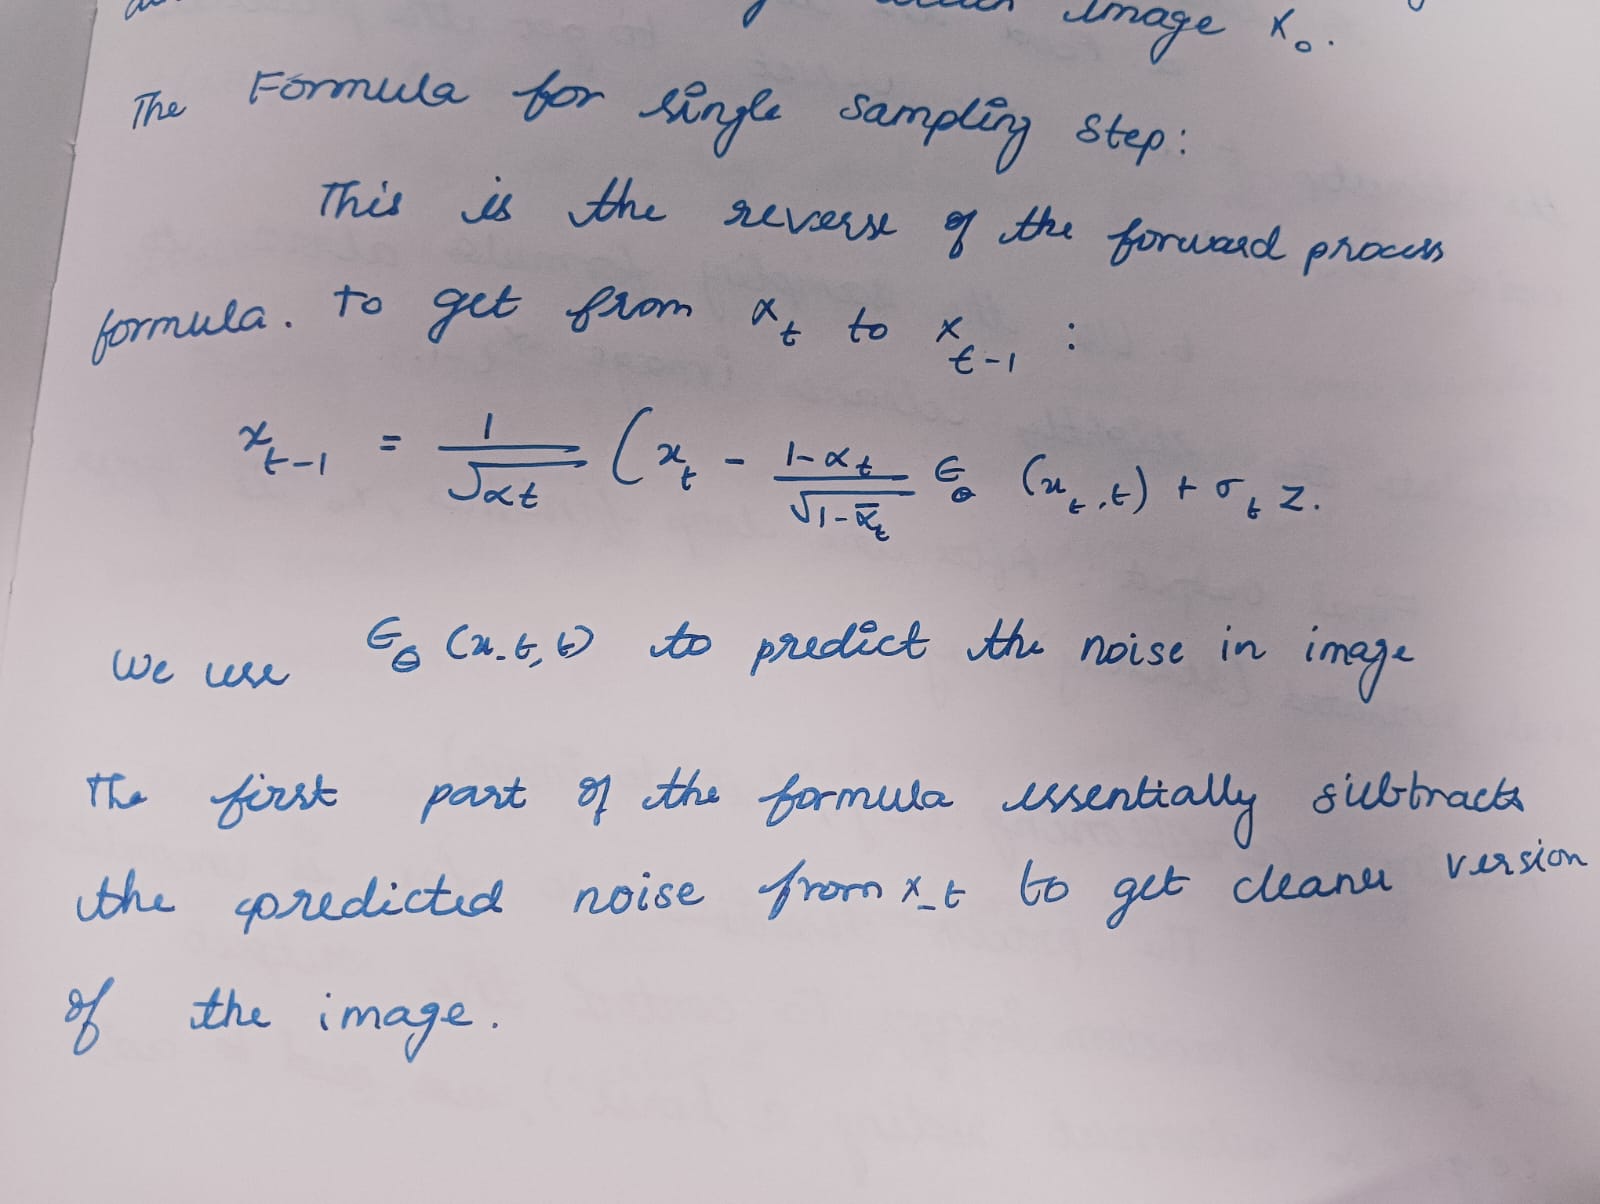 image x₀.
The Formula for single sampling step:
This is the reverse of the forward process
formula. To get from x_t to x_{t-1} :
x_{t-1} = 1/√αt (x_t - (1-α_t)/√(1-ᾱ_t) ϵ_θ (x_t,t) + σ_t z.
We use ϵ_θ (x_t,t) to predict the noise in image
The first part of the formula essentially subtracts
the predicted noise from x_t to get cleaner version
of the image.